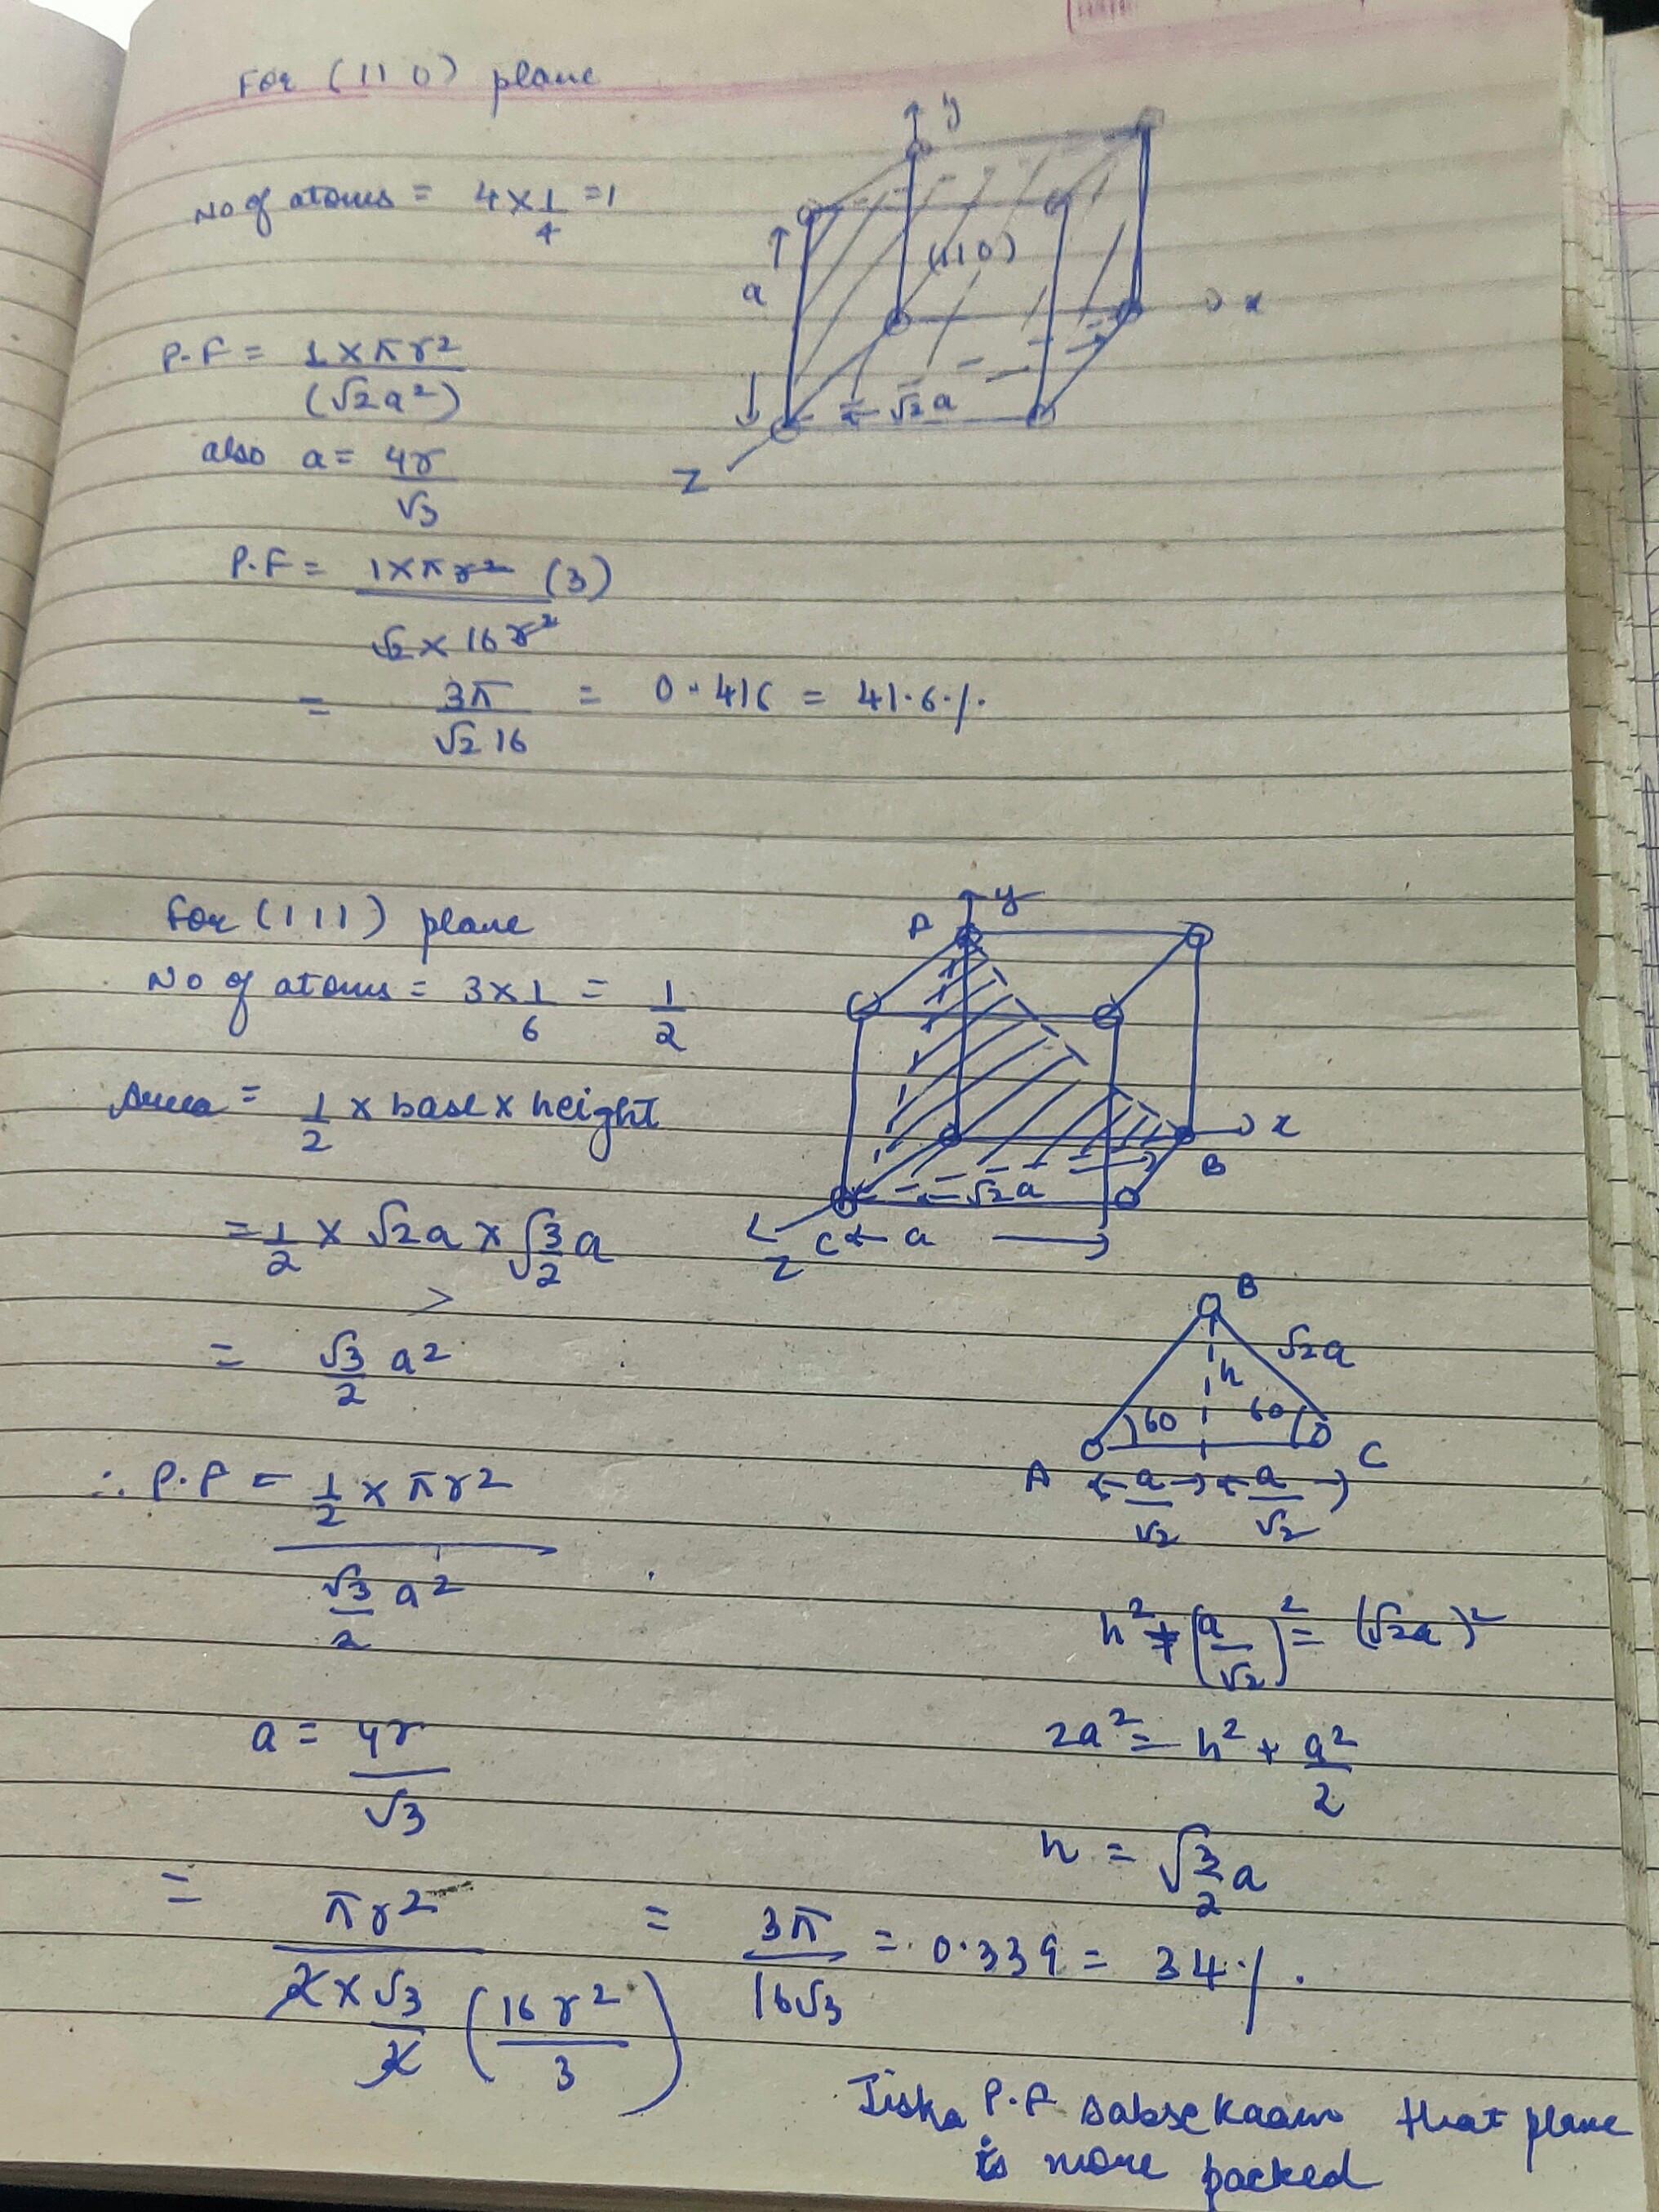 For (110) plane
No of atoms = 4 × 1/4 = 1
y
(110)
a
x
√2 a
Z
P.F = 1×πr² / (√2a²)
also a = 4r/√3
P.F = 1×πr² (3) / √2 × 16r²
= 3π / √2 16 = 0.416 = 41.6%
For (111) plane
No of atoms = 3×1/6 = 1/2
Area = 1/2 × base × height
= 1/2 × √2a × √3/2 a
= √3/2 a²
A
y
x
B
√2a
C
a
Z
B
√2a
h
60
60
A
C
a/√2
a/√2
∴ P.F = 1/2 × πr² / √3/2 a²
h² + (a/√2)² = (√2a)²
2a² = h² + a²/2
h = √3/2 a
a = 4r/√3
= πr² / 2×√3/2 (16r²/3) = 3π/16√3 = 0.339 = 34%.
Jiska P.F sabse kaam that plane
is more packed